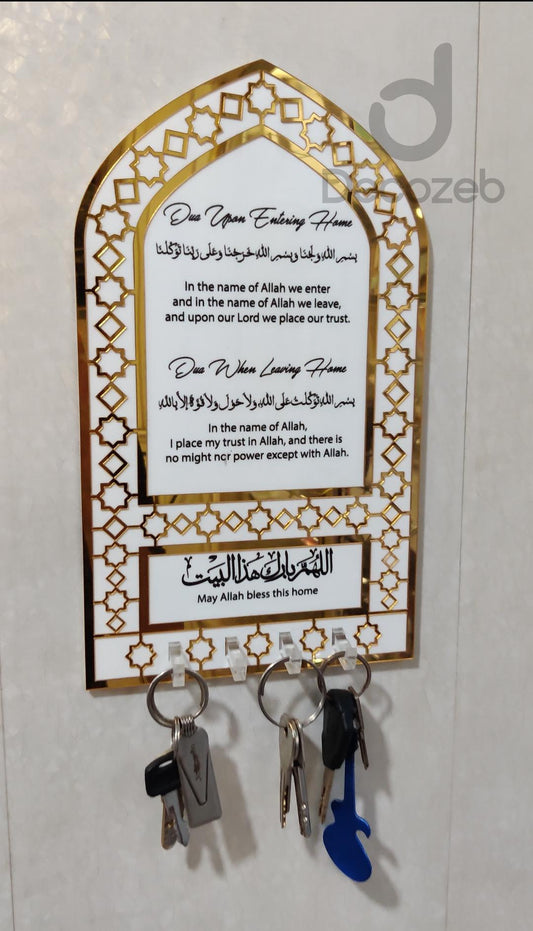 Decozeb
Dua Upon Entering Home
بسم الله ولجنا وبسم الله خرجنا وعلى ربنا توكلنا
In the name of Allah we enter
and in the name of Allah we leave,
and upon our Lord we place our trust.
Dua When Leaving Home
بسم الله توكلت على الله ولا حول ولا قوة إلا بالله
In the name of Allah,
I place my trust in Allah, and there is
no might nor power except with Allah.
اللهم بارك هذا البيت
May Allah bless this home